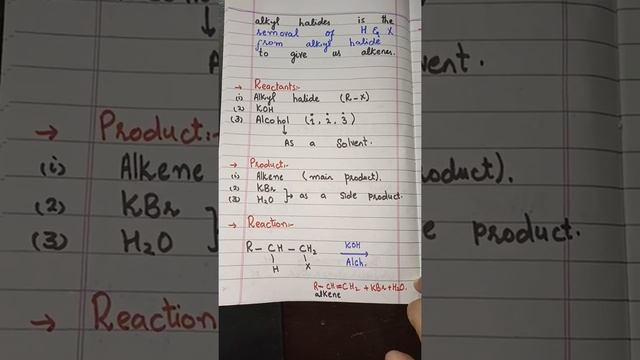 alkyl halides is the
removal of H & X
from alkyl halide
to give us alkenes.
→ Reactants:-
(i) Alkyl halide (R-X)
(2) KOH
(3) Alcohol (1°, 2°, 3°)
↓
As a solvent.
→ Product:-
(i) Alkene (main product).
(2) KBr
(3) H₂O } → as a side product.
→ Reaction:-
R – CH – CH₂ KOH →
H X Alch.
R–CH=CH₂ + KBr + H₂O.
alkene
→ Product:-
(i) Alkene
(2) KBr
(3) H₂O }
→ Reaction
vent.
oduct).
product.